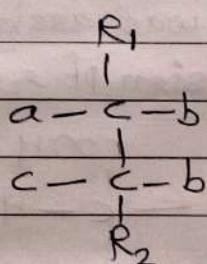 R1
a - c - b
c - c - b
R2